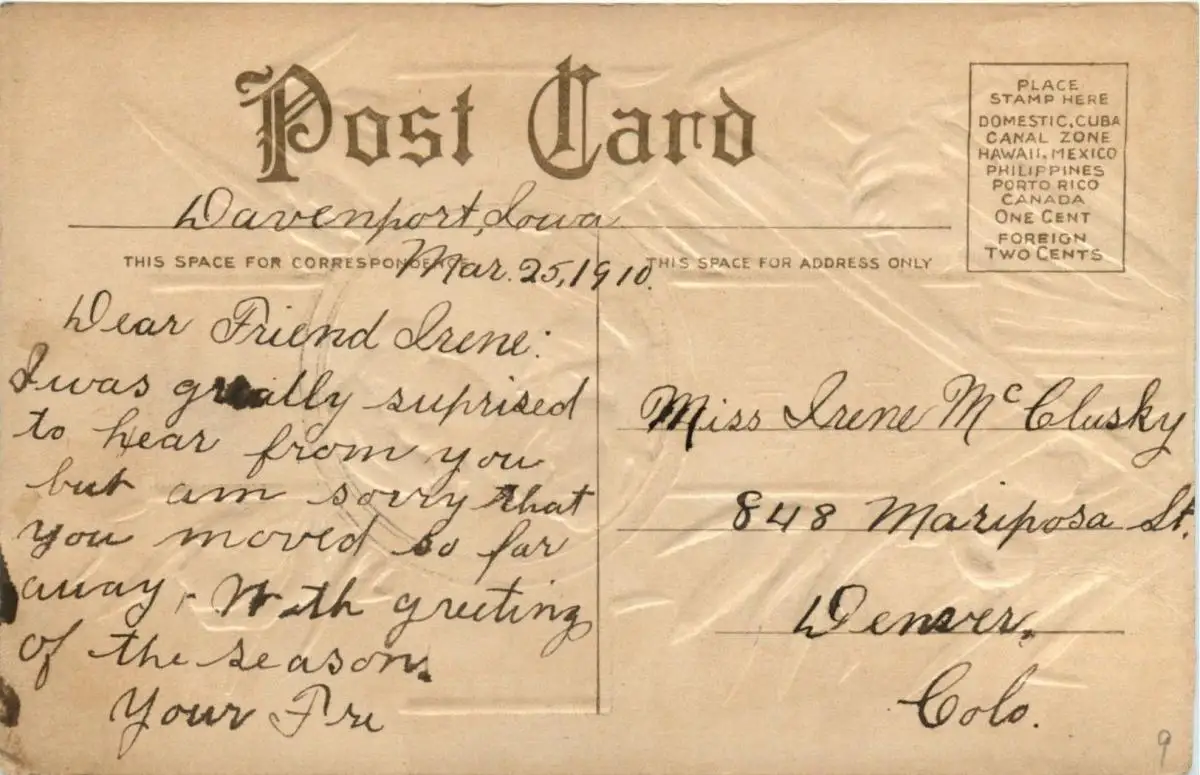 Post Card
PLACE
STAMP HERE
DOMESTIC, CUBA
CANAL ZONE
HAWAII, MEXICO
PHILIPPINES
PORTO RICO
CANADA
ONE CENT
FOREIGN
TWO CENTS
Davenport, Iowa
THIS SPACE FOR CORRESPONDENCE
Mar. 25, 1910.
THIS SPACE FOR ADDRESS ONLY
Dear Friend Irene:
I was greatly suprised
to hear from you
but am sorry that
you moved so far
away, With greeting
of the season.
Your Fri
Miss Irene McClusky
848 Mariposa St.
Denver,
Colo.
9